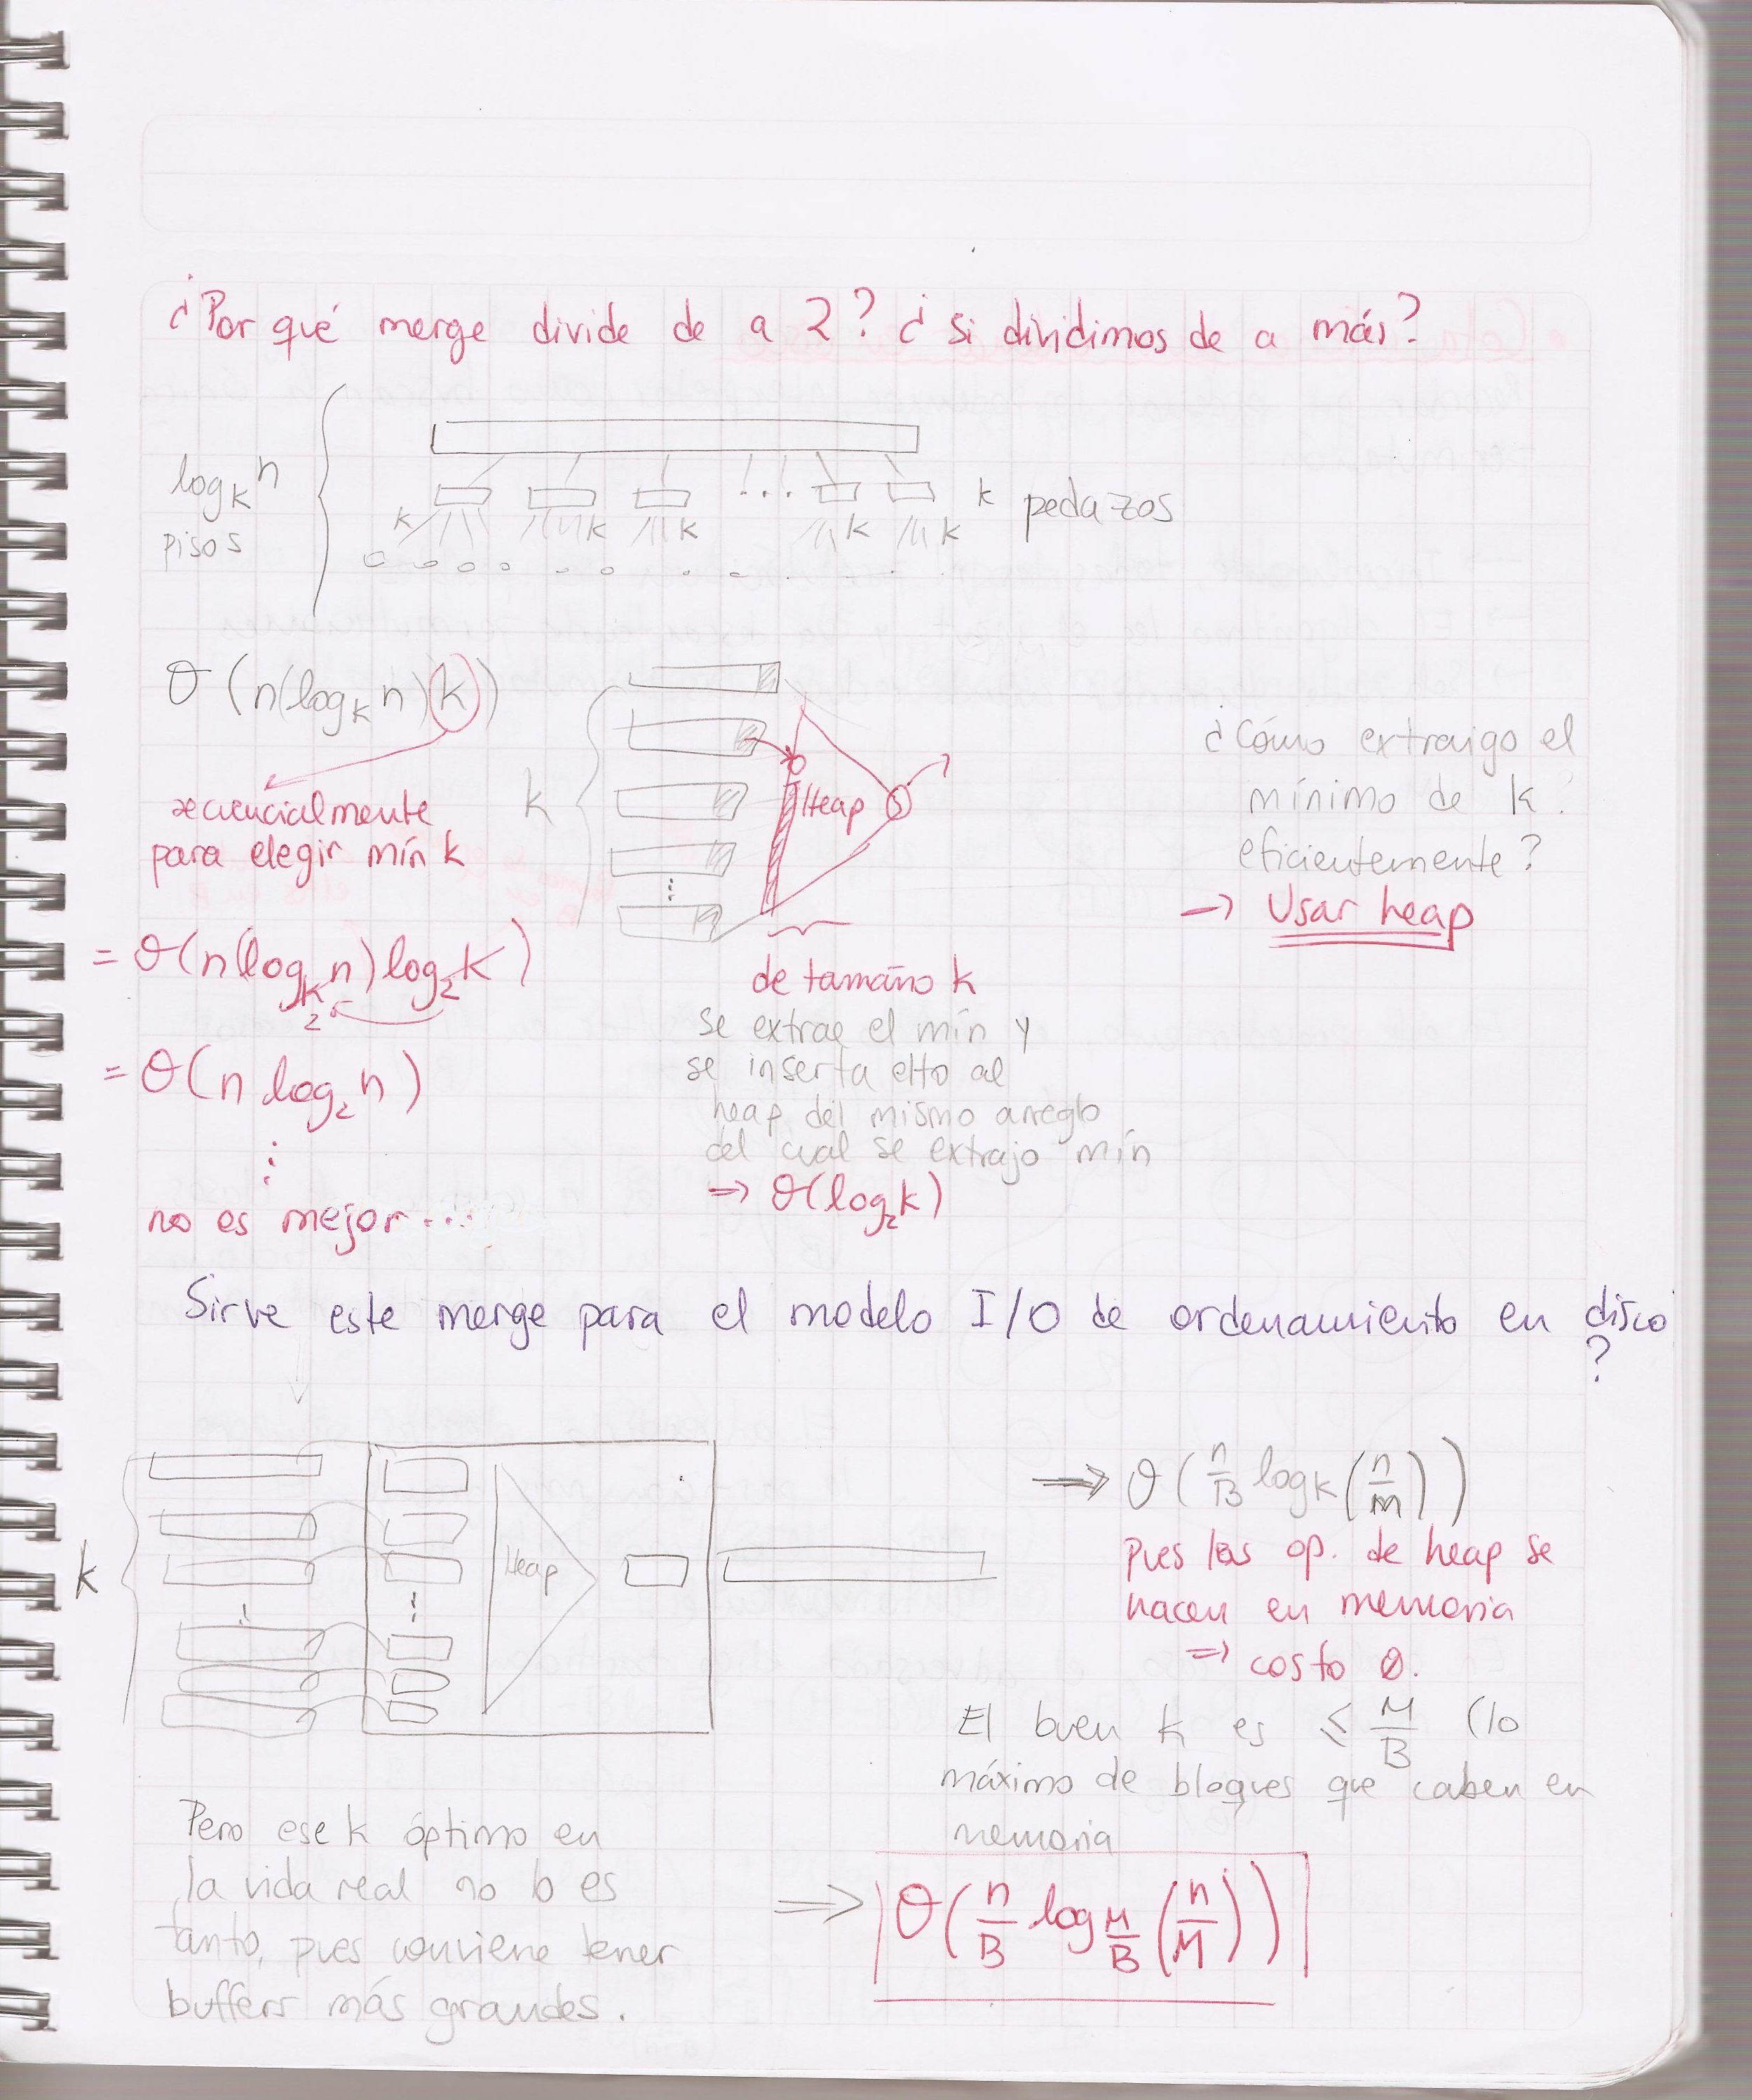 ¿Por qué merge divide de a 2? ¿si dividimos de a más?
log_k n
pisos
k k k k k
k pedazos
θ(n(log_k n)k)
secuencialmente
para elegir mín k
= θ(n(log_k n)log_2 k)
2
= θ(n log_2 n)
⋮
no es mejor...
k
Heap
de tamaño k
se extrae el mín y
se inserta elto al
heap del mismo arreglo
del cual se extrajo mín
⇒ θ(log_2 k)
¿Cómo extraigo el
mínimo de k
eficientemente?
→ Usar heap
Sirve este merge para el modelo I/O de ordenamiento en disco
?
k
Heap
⇒ θ(n/B log_k(n/m))
pues las op. de heap se
hacen en memoria
⇒ costo 0.
El buen k es ≤ M/B (lo
máximo de bloques que caben en
memoria
Pero ese k óptimo en
la vida real no lo es
tanto, pues conviene tener
buffers más grandes.
⇒ θ(n/B log_M/B(n/M))